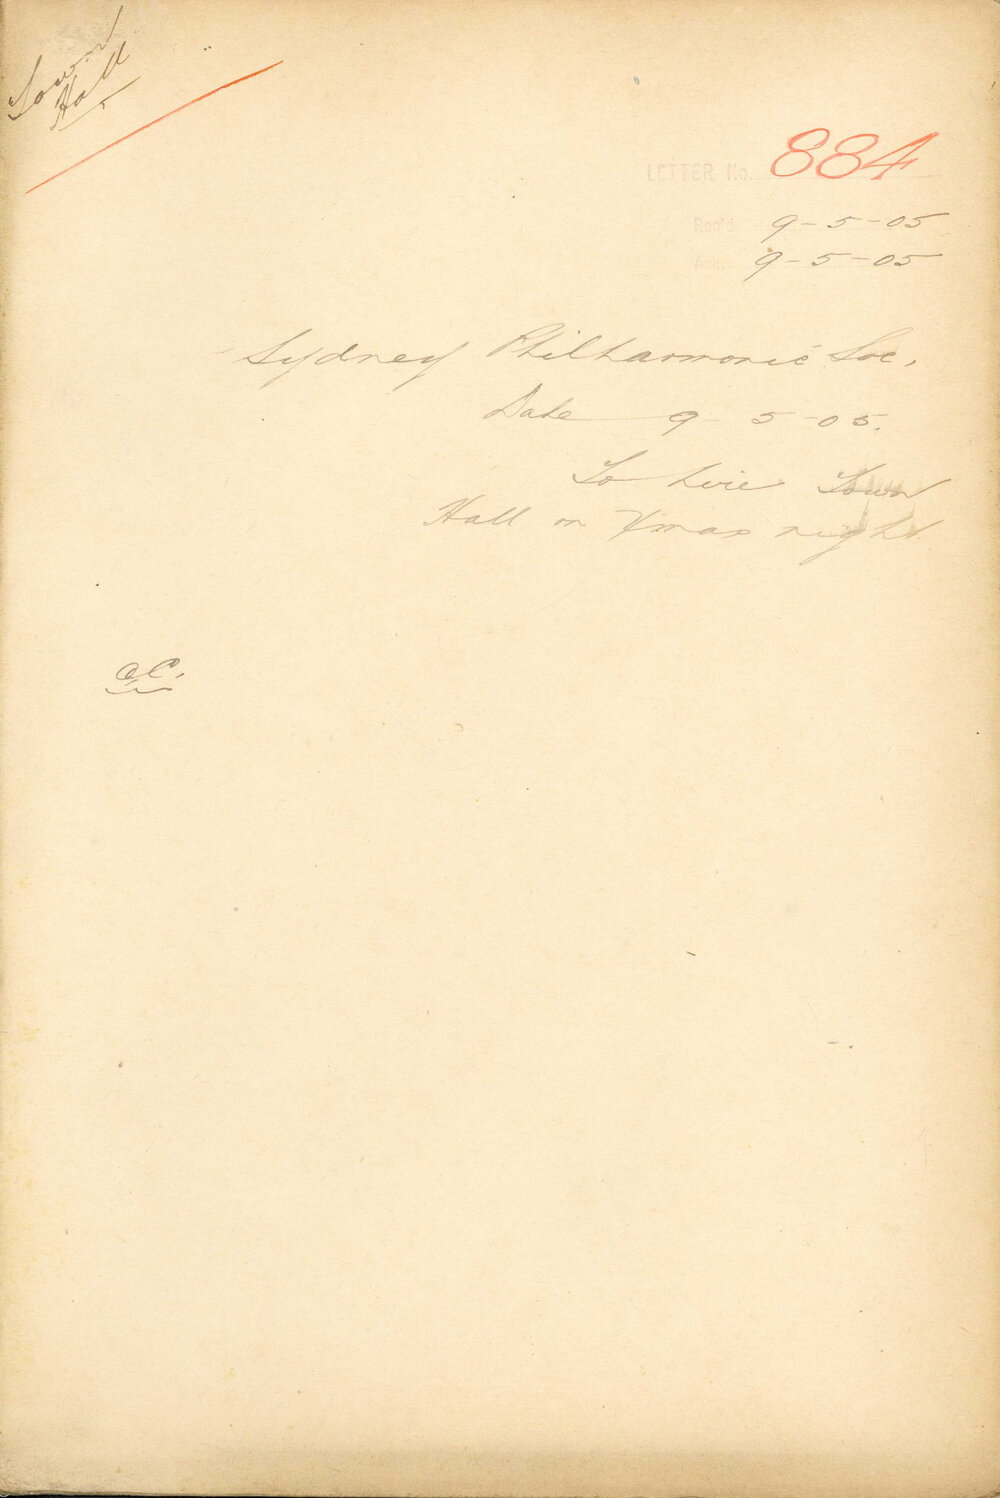 Town
Hall
LETTER No. 884
Rec'd 9-5-05
Ack. 9-5-05
Sydney Philharmonic Soc.
Date 9-5-05.
To hire Town
Hall on Xmas night